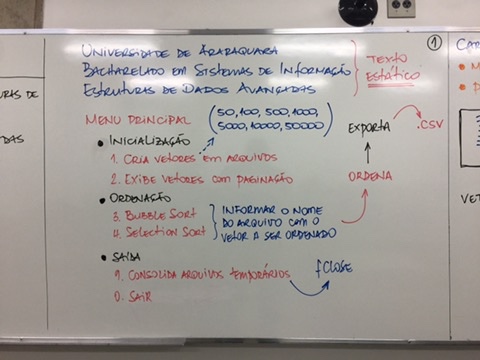 UNIVERSIDADE DE ARARAQUARA
BACHARELADO EM SISTEMAS DE INFORMAÇÃO
ESTRUTURAS DE DADOS AVANÇADAS
TEXTO
ESTÁTICO
1
MENU PRINCIPAL
(50, 100, 500, 1000,
5000, 10000, 50000)
EXPORTA
.CSV
• INICIALIZAÇÃO
1. CRIA VETORES EM ARQUIVOS
2. EXIBE VETORES COM PAGINAÇÃO
ORDENA
• ORDENAÇÃO
3. BUBBLE SORT
4. SELECTION SORT
INFORMAR O NOME
DO ARQUIVO COM O
VETOR A SER ORDENADO
• SAÍDA
9. CONSOLIDA ARQUIVOS TEMPORÁRIOS
fCLOSE
0. SAIR
URAS DE
DAS
CAR
VET